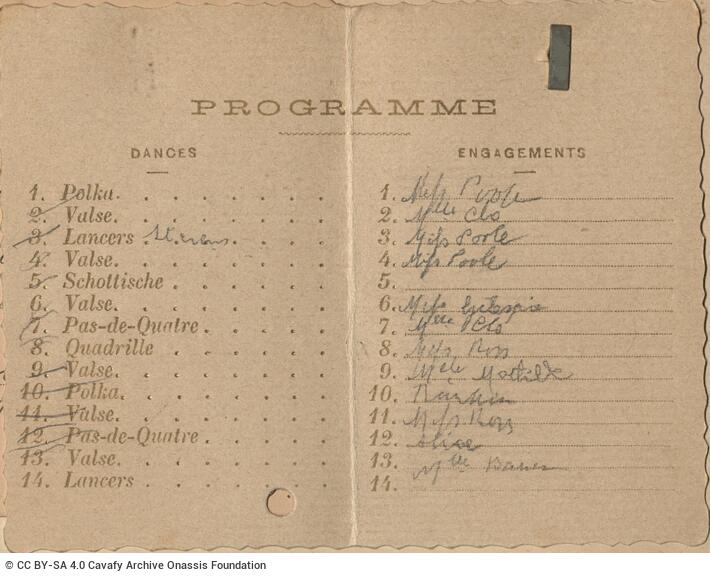 PROGRAMME
DANCES
1. Polka.
2. Valse.
3. Lancers
4. Valse.
5. Schottische
6. Valse.
7. Pas-de-Quatre
8. Quadrille
9. Valse.
10. Polka.
11. Valse.
12. Pas-de-Quatre
13. Valse.
14. Lancers
ENGAGEMENTS
1. Miss Poole
2. Mlle Clo
3. Miss Poole
4. Miss Poole
5.
6. Miss
7. Mlle Clo
8. Miss Ross
9. Mlle Mathilde
10.
11. Miss Ross
12. Alice
13. Mlle
14.
© CC BY-SA 4.0 Cavafy Archive Onassis Foundation